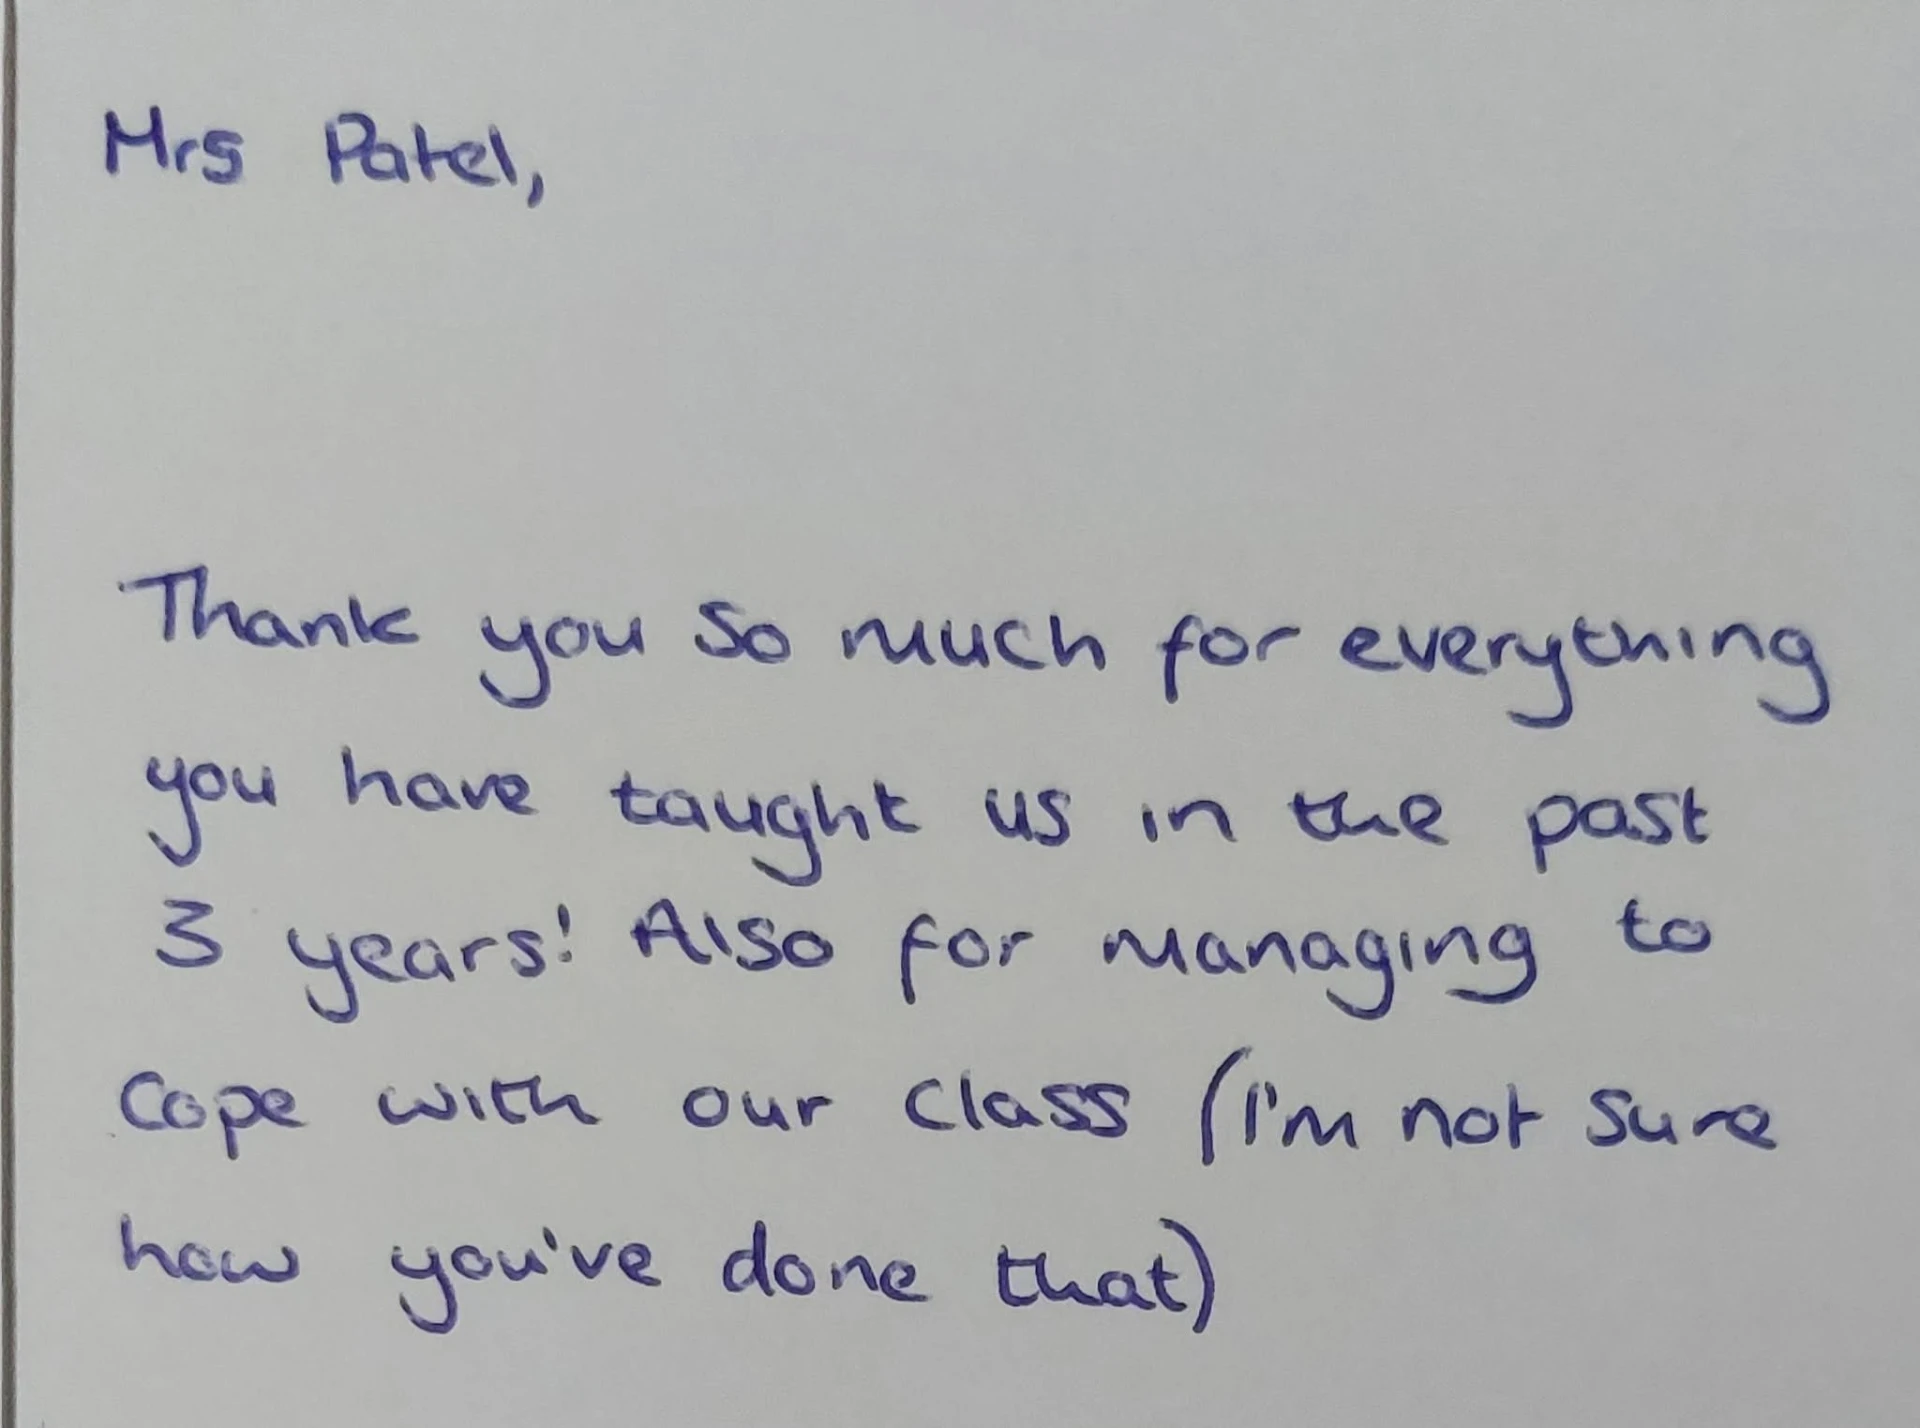 Mrs Patel,
Thank you so much for everything
you have taught us in the past
3 years! Also for managing to
cope with our class (I'm not sure
how you've done that)